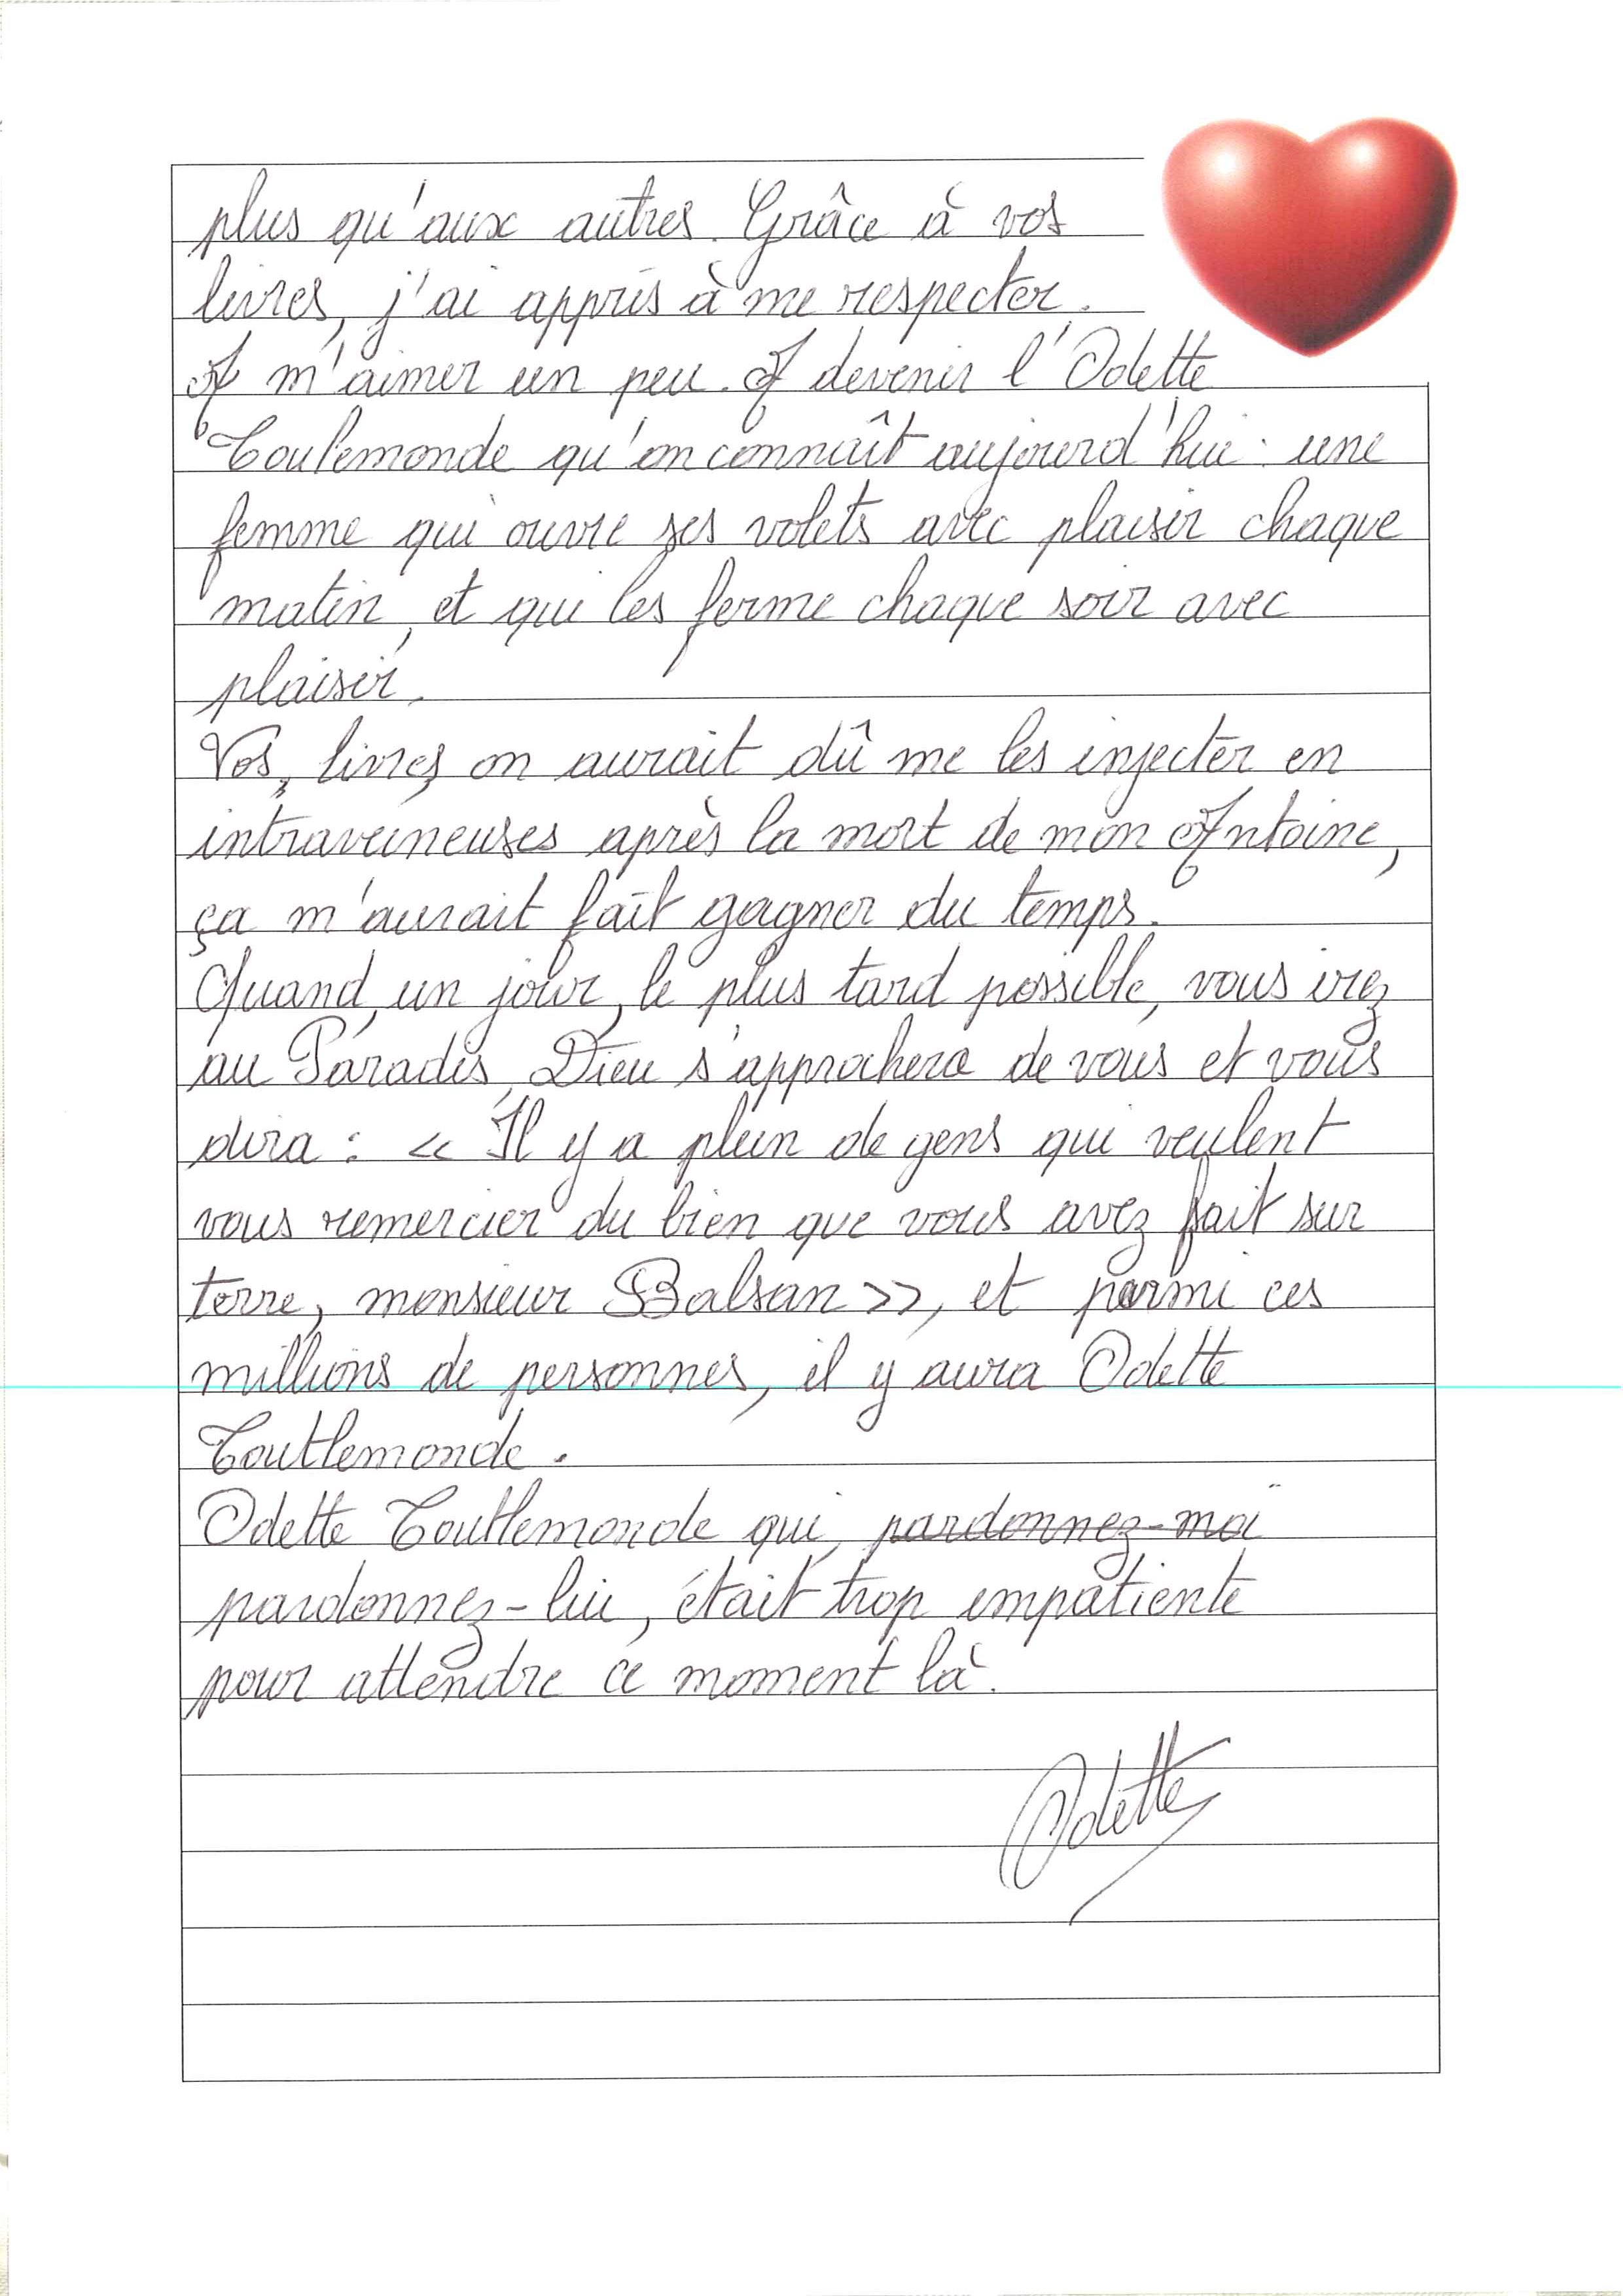 plus qu'aux autres. Grâce à vos
livres, j'ai appris à me respecter.
A m'aimer un peu. A devenir l'Odette
Toulemonde qu'on connaît aujourd'hui : une
femme qui ouvre ses volets avec plaisir chaque
matin, et qui les ferme chaque soir avec
plaisir.
Vos, livres, on aurait dû me les injecter en
intraveineuses après la mort de mon Antoine,
ça m'aurait fait gagner du temps.
Quand, un jour, le plus tard possible, vous irez
au Paradis, Dieu s'approchera de vous et vous
dira : « Il y a plein de gens qui veulent
vous remercier du bien que vous avez fait sur
terre, monsieur Balsan », et parmi ces
millions de personnes, il y aura Odette
Toutlemonde.
Odette Toutlemonde qui, pardonnez-moi
pardonnez-lui, était trop impatiente
pour attendre ce moment là.
Odette